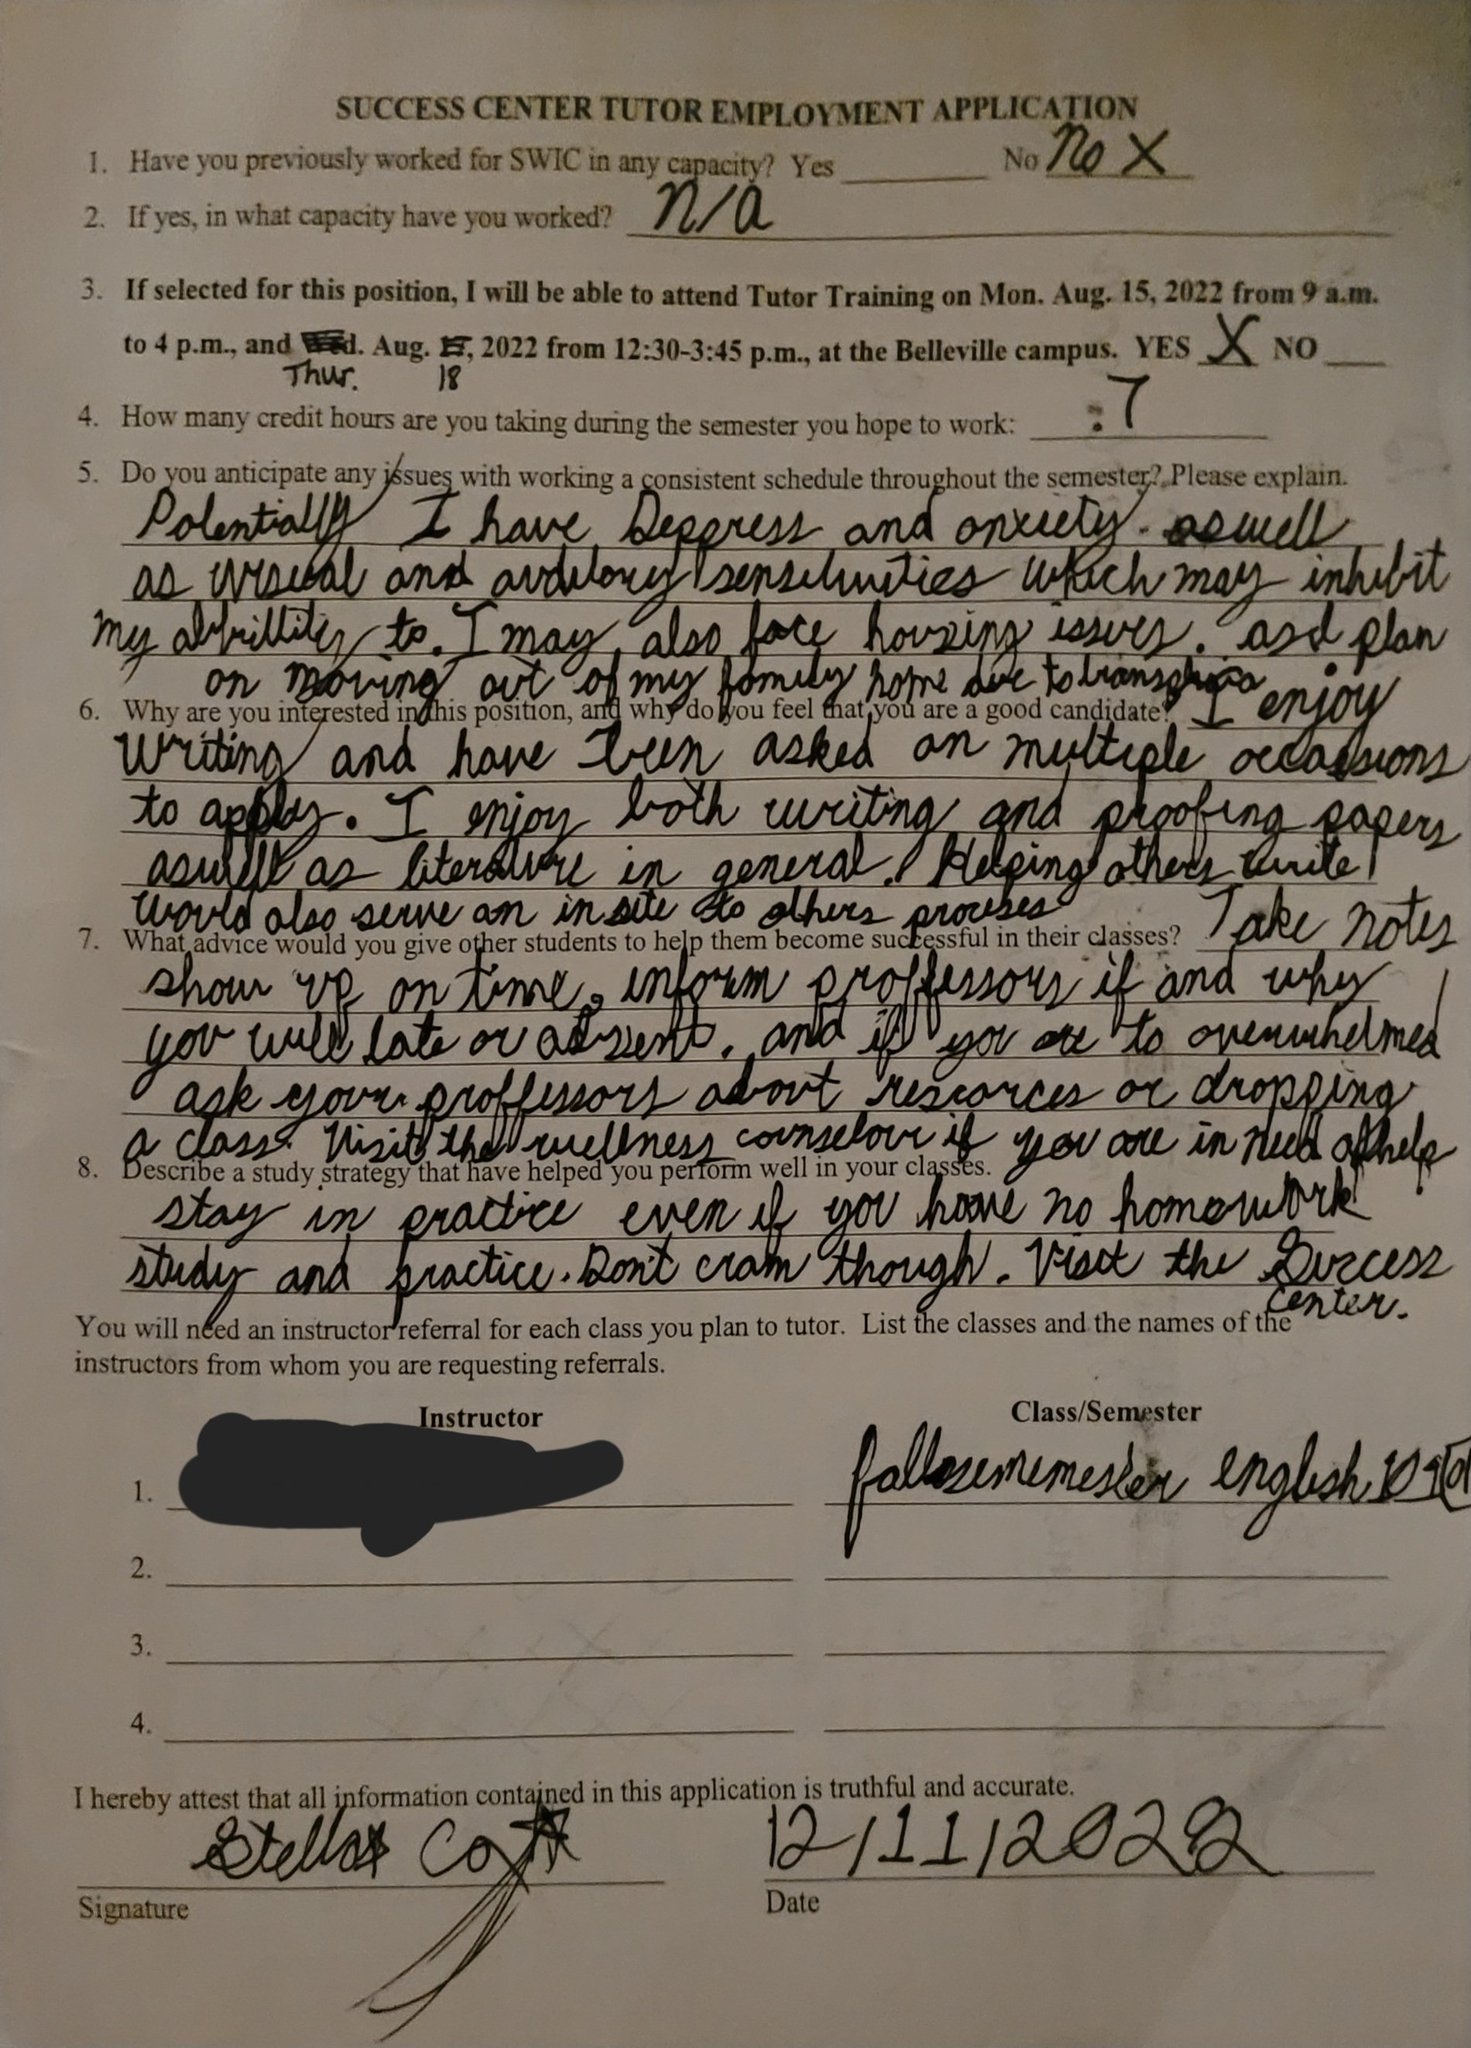 SUCCESS CENTER TUTOR EMPLOYMENT APPLICATION
1. Have you previously worked for SWIC in any capacity? Yes ______ No No X
2. If yes, in what capacity have you worked? n/a
3. If selected for this position, I will be able to attend Tutor Training on Mon. Aug. 15, 2022 from 9 a.m.
to 4 p.m., and Wed. Aug. 17, 2022 from 12:30-3:45 p.m., at the Belleville campus. YES X NO ___
Thur. 18
4. How many credit hours are you taking during the semester you hope to work: :7
5. Do you anticipate any issues with working a consistent schedule throughout the semester? Please explain.
Potentially I have Deppress and anxiety. aswell
as visual and auditory sensitivities which may inhibit
my abbillitiy to. I may also face housing issues. and plan
on moving out of my family home due to transphobia
6. Why are you interested in this position, and why do you feel that you are a good candidate? I enjoy
writing and have been asked on multiple occassions
to apply. I enjoy both writing and proofing papers
aswell as literature in general. Helping others write
would also serve an insite to others proceses
7. What advice would you give other students to help them become successful in their classes? Take notes
show up on time, inform proffessors if and why
you will late or absent. and if you are to overwhelmed
ask your proffessors about rescorces or dropping
a class. Visit the wellness counselour if you are in need of help
8. Describe a study strategy that have helped you perform well in your classes.
stay in practice even if you have no homework
study and practice. Don't cram though. Visit the Success
Center.
You will need an instructor referral for each class you plan to tutor. List the classes and the names of the
instructors from whom you are requesting referrals.
Instructor Class/Semester
1. fall semememester english
2.
3.
4.
I hereby attest that all information contained in this application is truthful and accurate.
Stella 12/11/2022
Signature Date